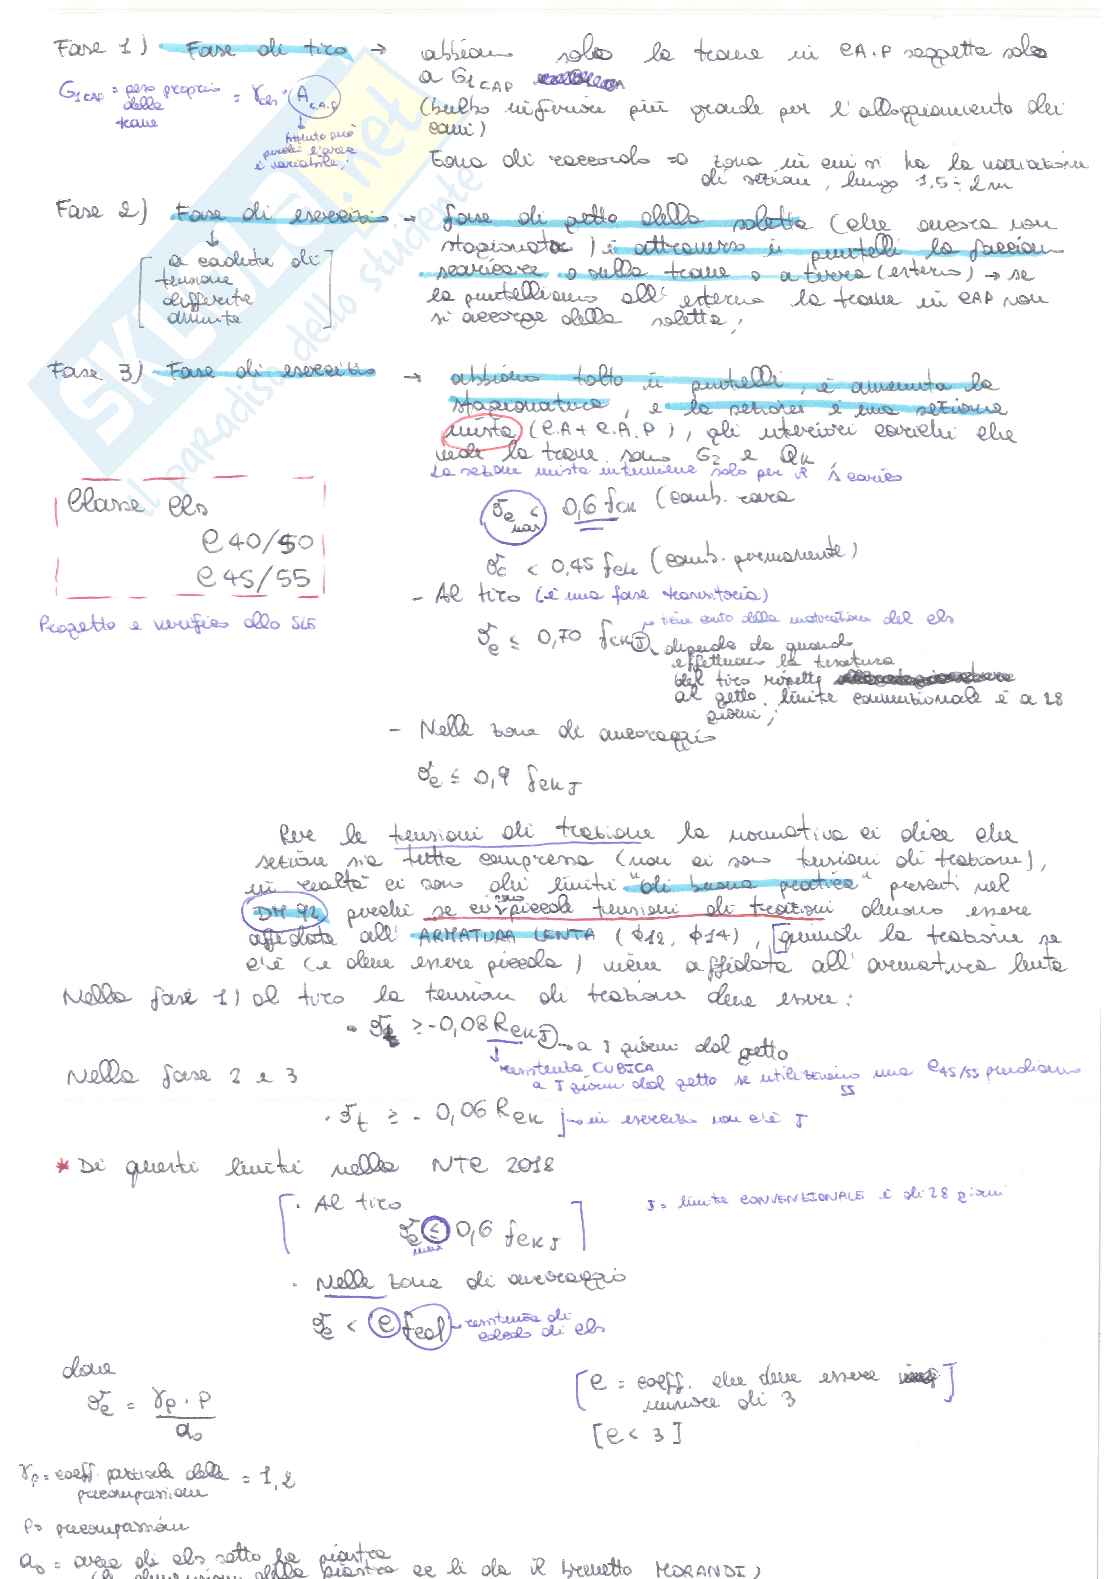 Fase 1) Fase di tiro → abbiamo solo la trave in C.A.P soggetta solo
a G1CAP
G1CAP = peso proprio della trave = γcls · A c.a.p
(bulbo inferiore più grande per l'alloggiamento dei
cavi)
perché l'area
è variabile;
Zona di raccordo => zona in cui si ha la variazione
di sezione, lunga 1,5÷2m
Fase 2) Fase di esercizio → fase di getto della soletta (che ancora non
stagionata) e attraverso i puntelli la facciamo
scaricare o sulla trave o a terra (esterno) → se
la puntelliamo all'esterno la trave in CAP non
si accorge della soletta;
a cadute di
tensione
differite
avvenute
Fase 3) Fase di esercizio → abbiamo tolto i puntelli, è avvenuta la
stagionatura, e la sezione è una sezione
mista (C.A + C.A.P), gli ulteriori carichi che
vede la trave sono G2 e Qk
La sezione mista interviene solo per
Classe cls
C40/50
C45/55
Progetto e verifica allo SLE
σc max < 0,6 fck (comb. rara
σc < 0,45 fck (comb. permanente)
- Al tiro (è una fase transitoria)
σc ≤ 0,70 fckJ → tiene conto della maturazione del cls
dipende da quando
effettuiamo la tesatura
del tiro rispetto
al getto. limite convenzionale è a 28
giorni;
- Nella zona di ancoraggio
σc ≤ 0,9 fckJ
Per le tensioni di trazione la normativa ci dice che
sezione sia tutta compressa (non ci sono tensioni di trazione),
in realtà ci sono dei limiti "di buona pratica" presenti nel
DM 92 perché se ci sono piccole tensioni di trazioni devono essere
affidate all'ARMATURA LENTA (φ12, φ14), quindi la trazione se
c'è (e deve essere piccola) viene affidata all'armatura lenta
Nella fase 1) al tiro la tensione di trazione deve essere:
• σt ≥ -0,08 RckJ → a J giorni dal getto
resistenza CUBICA
a J giorni dal getto se utilizziamo una C45/55 prendiamo
55
Nella fase 2 e 3
• σt ≥ - 0,06 Rck → in esercizio non c'è J
* Di questi limiti nella NTC 2018
• Al tiro
J = limite CONVENZIONALE è di 28 giorni
σc ≤ 0,6 fckJ
• Nella zona di ancoraggio
σc < C fcd → resistenza di
calcolo di cls
dove
σc = γp · P / a0
[C = coeff. che deve essere
minore di 3
[C < 3]
γp = coeff. parziale della
precompressione = 1,2
P = precompressione
a0 = area di cls sotto la piastra
(le dimensioni della piastra ce li da il brevetto MORANDI)